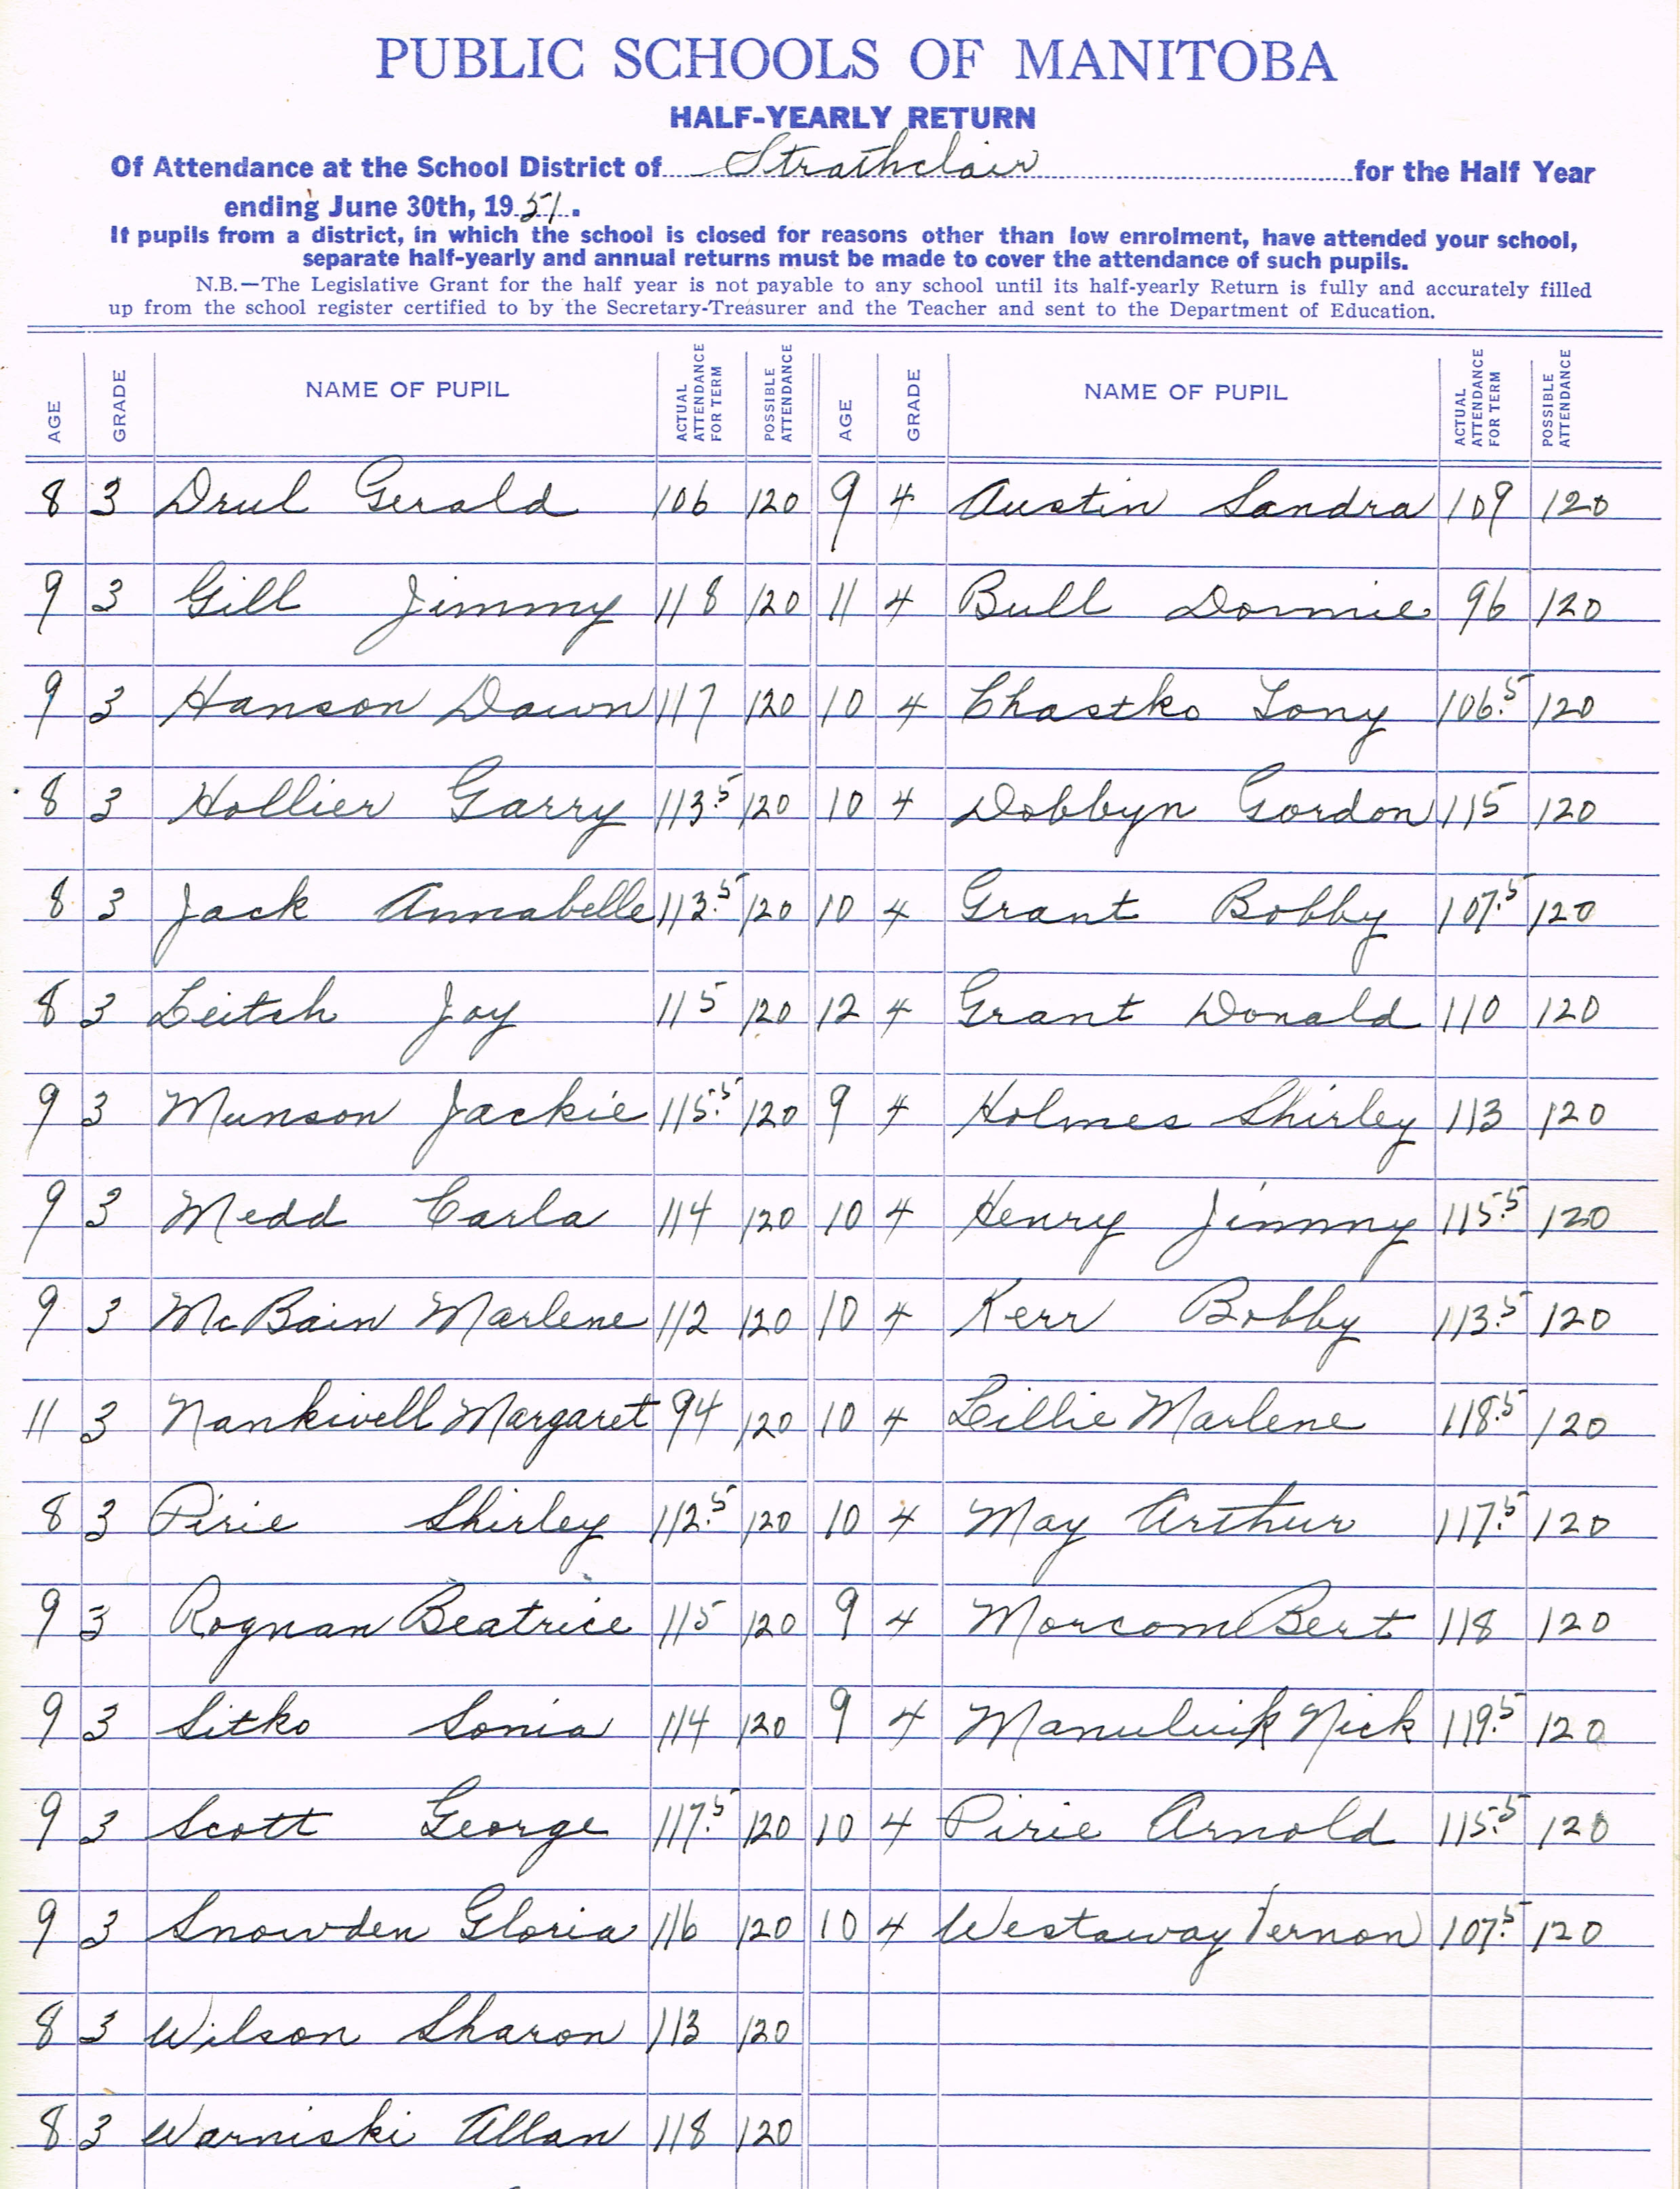 PUBLIC SCHOOLS OF MANITOBA
HALF-YEARLY RETURN
Of Attendance at the School District of Strathclair for the Half Year
ending June 30th, 1951.
If pupils from a district, in which the school is closed for reasons other than low enrolment, have attended your school,
separate half-yearly and annual returns must be made to cover the attendance of such pupils.
N.B.—The Legislative Grant for the half year is not payable to any school until its half-yearly Return is fully and accurately filled
up from the school register certified to by the Secretary-Treasurer and the Teacher and sent to the Department of Education.
AGE GRADE NAME OF PUPIL ACTUAL ATTENDANCE FOR TERM POSSIBLE ATTENDANCE AGE GRADE NAME OF PUPIL ACTUAL ATTENDANCE FOR TERM POSSIBLE ATTENDANCE
8 3 Drul Gerald 106 120 9 4 Austin Sandra 109 120
9 3 Gill Jimmy 118 120 11 4 Bull Donnie 96 120
9 3 Hanson Dawn 117 120 10 4 Chastko Tony 106.5 120
8 3 Hollier Garry 113.5 120 10 4 Dobbyn Gordon 115 120
8 3 Jack Annabelle 113.5 120 10 4 Grant Bobby 107.5 120
8 3 Leitch Joy 115 120 12 4 Grant Donald 110 120
9 3 Munson Jackie 115.5 120 9 4 Holmes Shirley 113 120
9 3 Medd Carla 114 120 10 4 Henry Jimmy 115.5 120
9 3 McBain Marlene 112 120 10 4 Kerr Bobby 113.5 120
11 3 Nankivell Margaret 94 120 10 4 Lillie Marlene 118.5 120
8 3 Pirie Shirley 112.5 120 10 4 May Arthur 117.5 120
9 3 Rognan Beatrice 115 120 9 4 Morcom Bert 118 120
9 3 Sitko Sonia 114 120 9 4 Manuluik Nick 119.5 120
9 3 Scott George 117.5 120 10 4 Pirie Arnold 115.5 120
9 3 Snowden Gloria 116 120 10 4 Westaway Vernon 107.5 120
8 3 Wilson Sharon 113 120
8 3 Warniski Allan 118 120